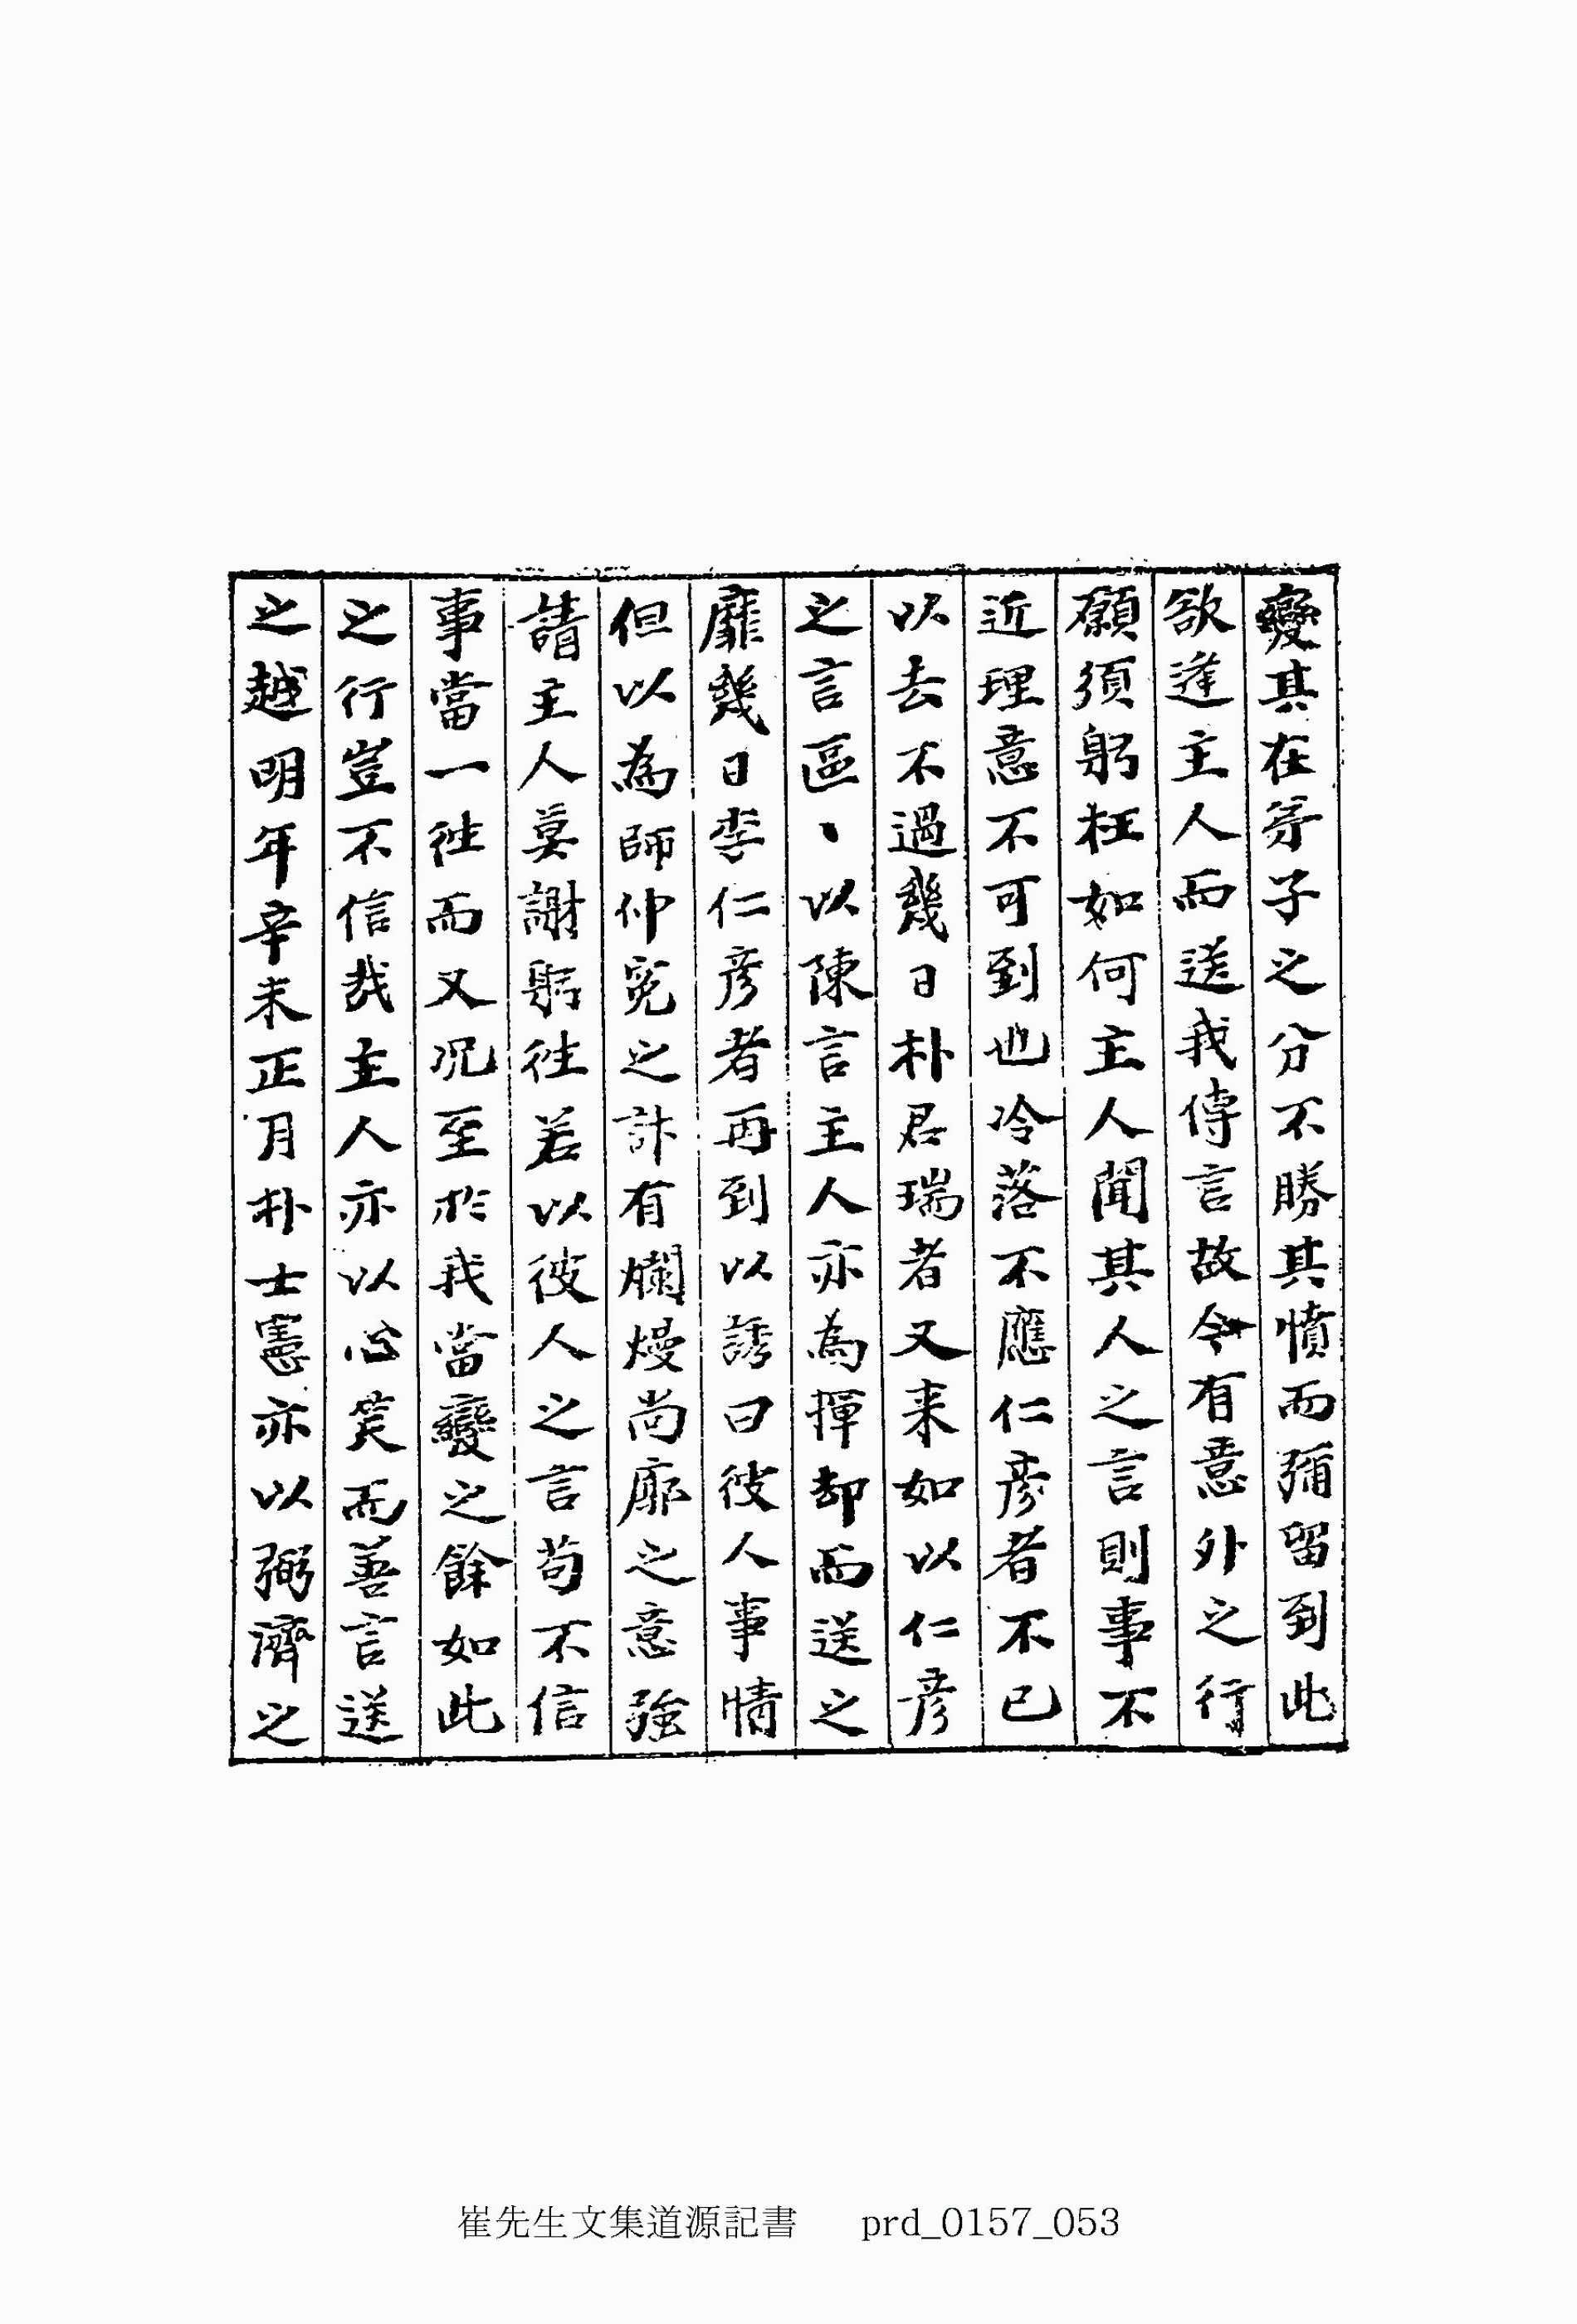 變其在弟子之分不勝其憤而彌留到此
欲逢主人而送我傳言故今有意外之行
願須躬枉如何主人聞其人之言則事不
近理意不可到也冷落不應仁彦者不已
以去不過幾日朴君瑞者又来如以仁彦
之言區丶以陳言主人亦為揮却而送之
靡幾日李仁彦者再到以誘曰彼人事情
但以為師仲寃之計有爛熳尚廓之意強
請主人莫謝躬徃若以彼人之言苟不信
事當一徃而又况至於我當變之餘如此
之行豈不信哉主人亦以心笑而善言送
之越明年辛未正月朴士憲亦以弼濟之
崔先生文集道源記書 prd_0157_053